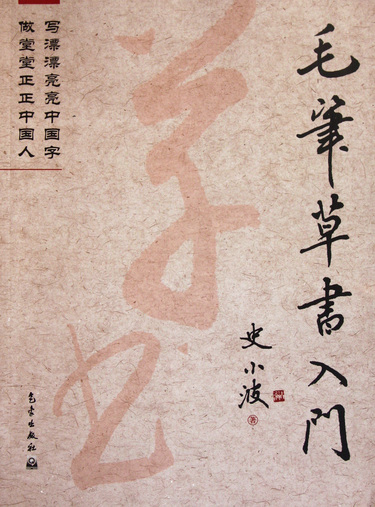 毛筆草書入門
写漂漂亮亮中国字
做堂堂正正中国人
草书
史小波
著
气象出版社